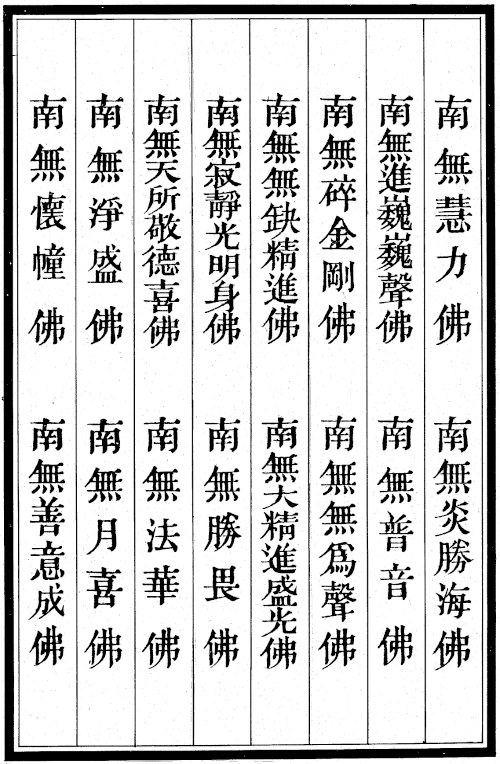 南無慧力佛
南無炎勝海佛
南無進巍巍聲佛
南無普音佛
南無碎金剛佛
南無無為聲佛
南無無缺精進佛
南無大精進盛光佛
南無寂靜光明身佛
南無勝畏佛
南無天所敬德喜佛
南無法華佛
南無淨盛佛
南無月喜佛
南無懷幢佛
南無善意成佛